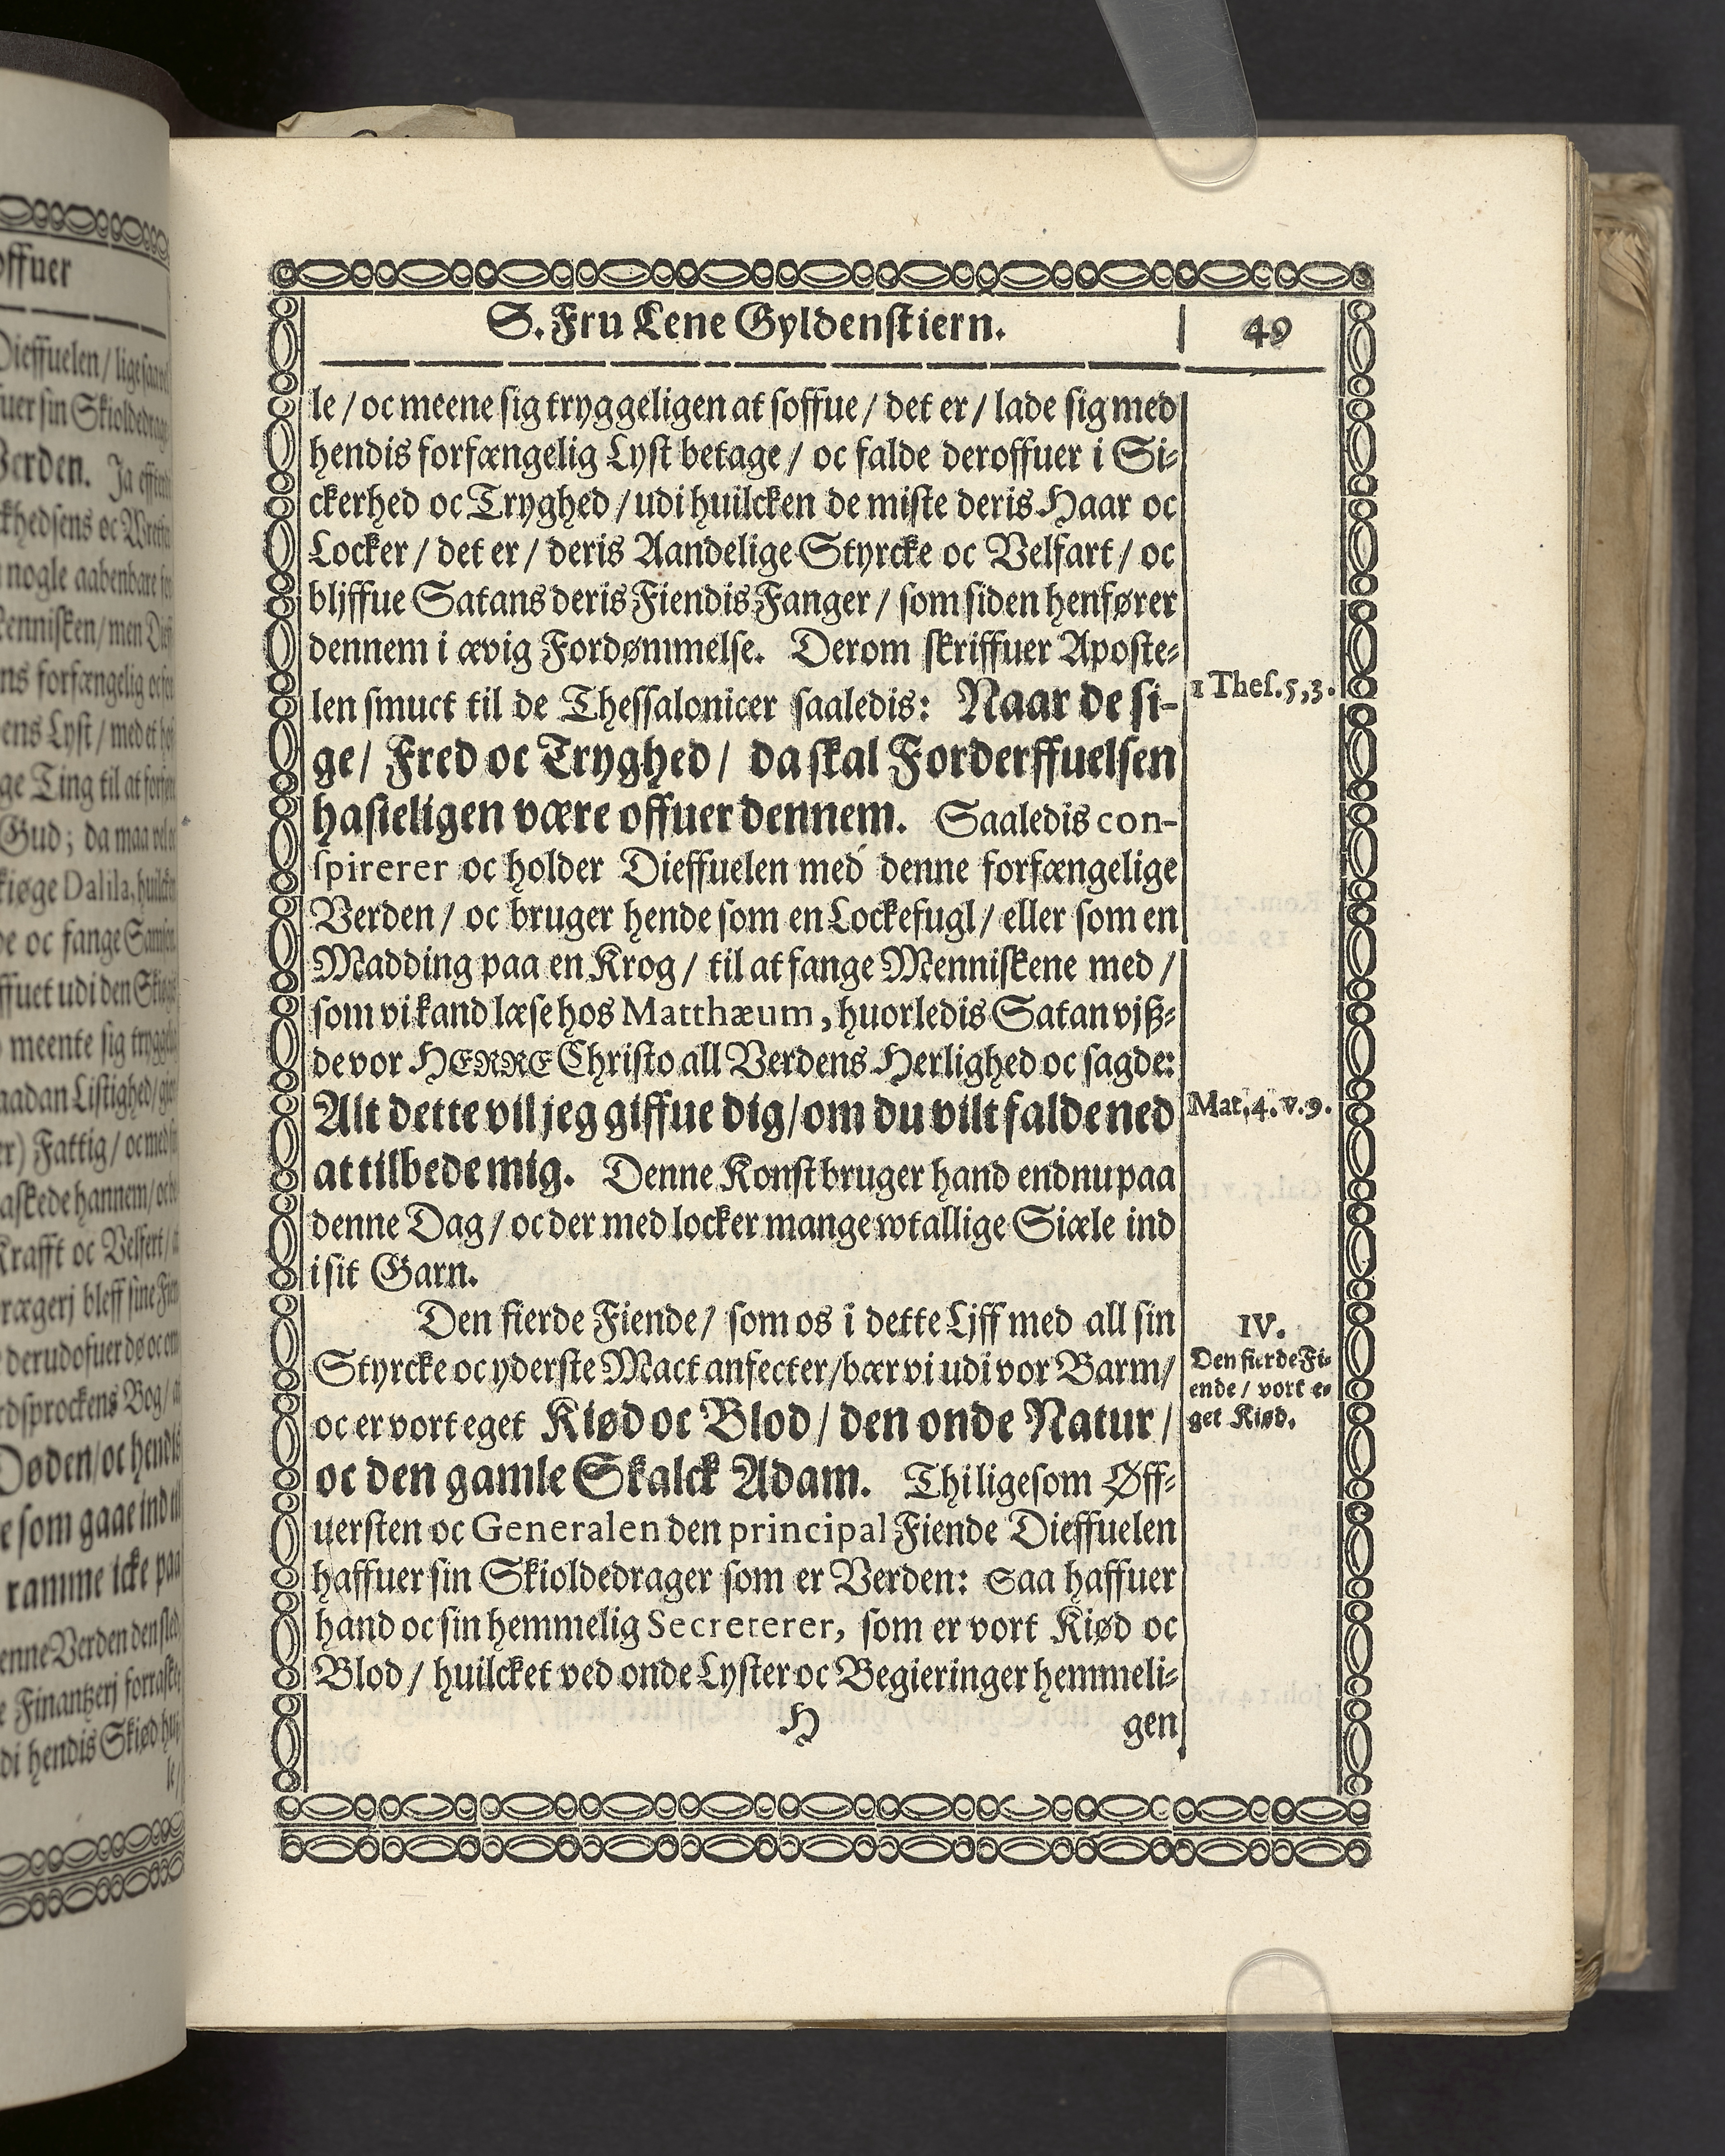 S. Fru Lene Gyldenstiern.
49
le / oc meene sig tryggeligen at soffue / det er / lade sig med
hendis forfængelig Lyst betage / oc falde deroffuer i Si-
ckerhed oc Tryghed / udi huilcken de miste deris Haar oc
Locker / det er / deris Aandelige Styrcke oc Velfart / oc
bliffue Satans deris Fiendis Fanger / som siden henfører
dennem i ævig Fordømmelse. Derom skriffuer Aposte-
len smuct til de Thessalonicer saaledis: Naar de si-
1 Thes. 5, 3.
ge / Fred oc Tryghed / da skal Forderffuelsen
hasteligen være offuer dennem. Saaledis con-
spirerer oc holder Dieffuelen med denne forfængelige
Verden / oc bruger hende som en Lockefugl / eller som en
Madding paa en Krog / til at fange Menniskene med /
som vi kand læse hos Matthæum, huorledis Satan vjß-
de vor HERRE Christo all Verdens Herlighed oc sagde:
Alt dette vil jeg giffue dig / om du vilt falde ned
Mat. 4. v. 9.
at tilbede mig. Denne Konst bruger hand endnu paa
denne Dag / oc der med locker mange wtallige Siæle ind
i sit Garn.
Den fierde Fiende / som os i dette Ljff med all sin
IV.
Styrcke oc yderste Mact anfecter / bær vi udi vor Barm /
Den fierde Fi-
ende / vort e-
get Kiød.
oc er vort eget Kiød oc Blod / den onde Natur /
oc den gamle Skalck Adam. Thi ligesom Øff-
uersten oc Generalen den principal Fiende Dieffuelen
haffuer sin Skioldedrager som er Verden: saa haffuer
hand oc sin hemmelig Secreterer, som er vort Kiød oc
Blod / huilcket ved onde Lyster oc Begieringer hemmeli-
H
gen